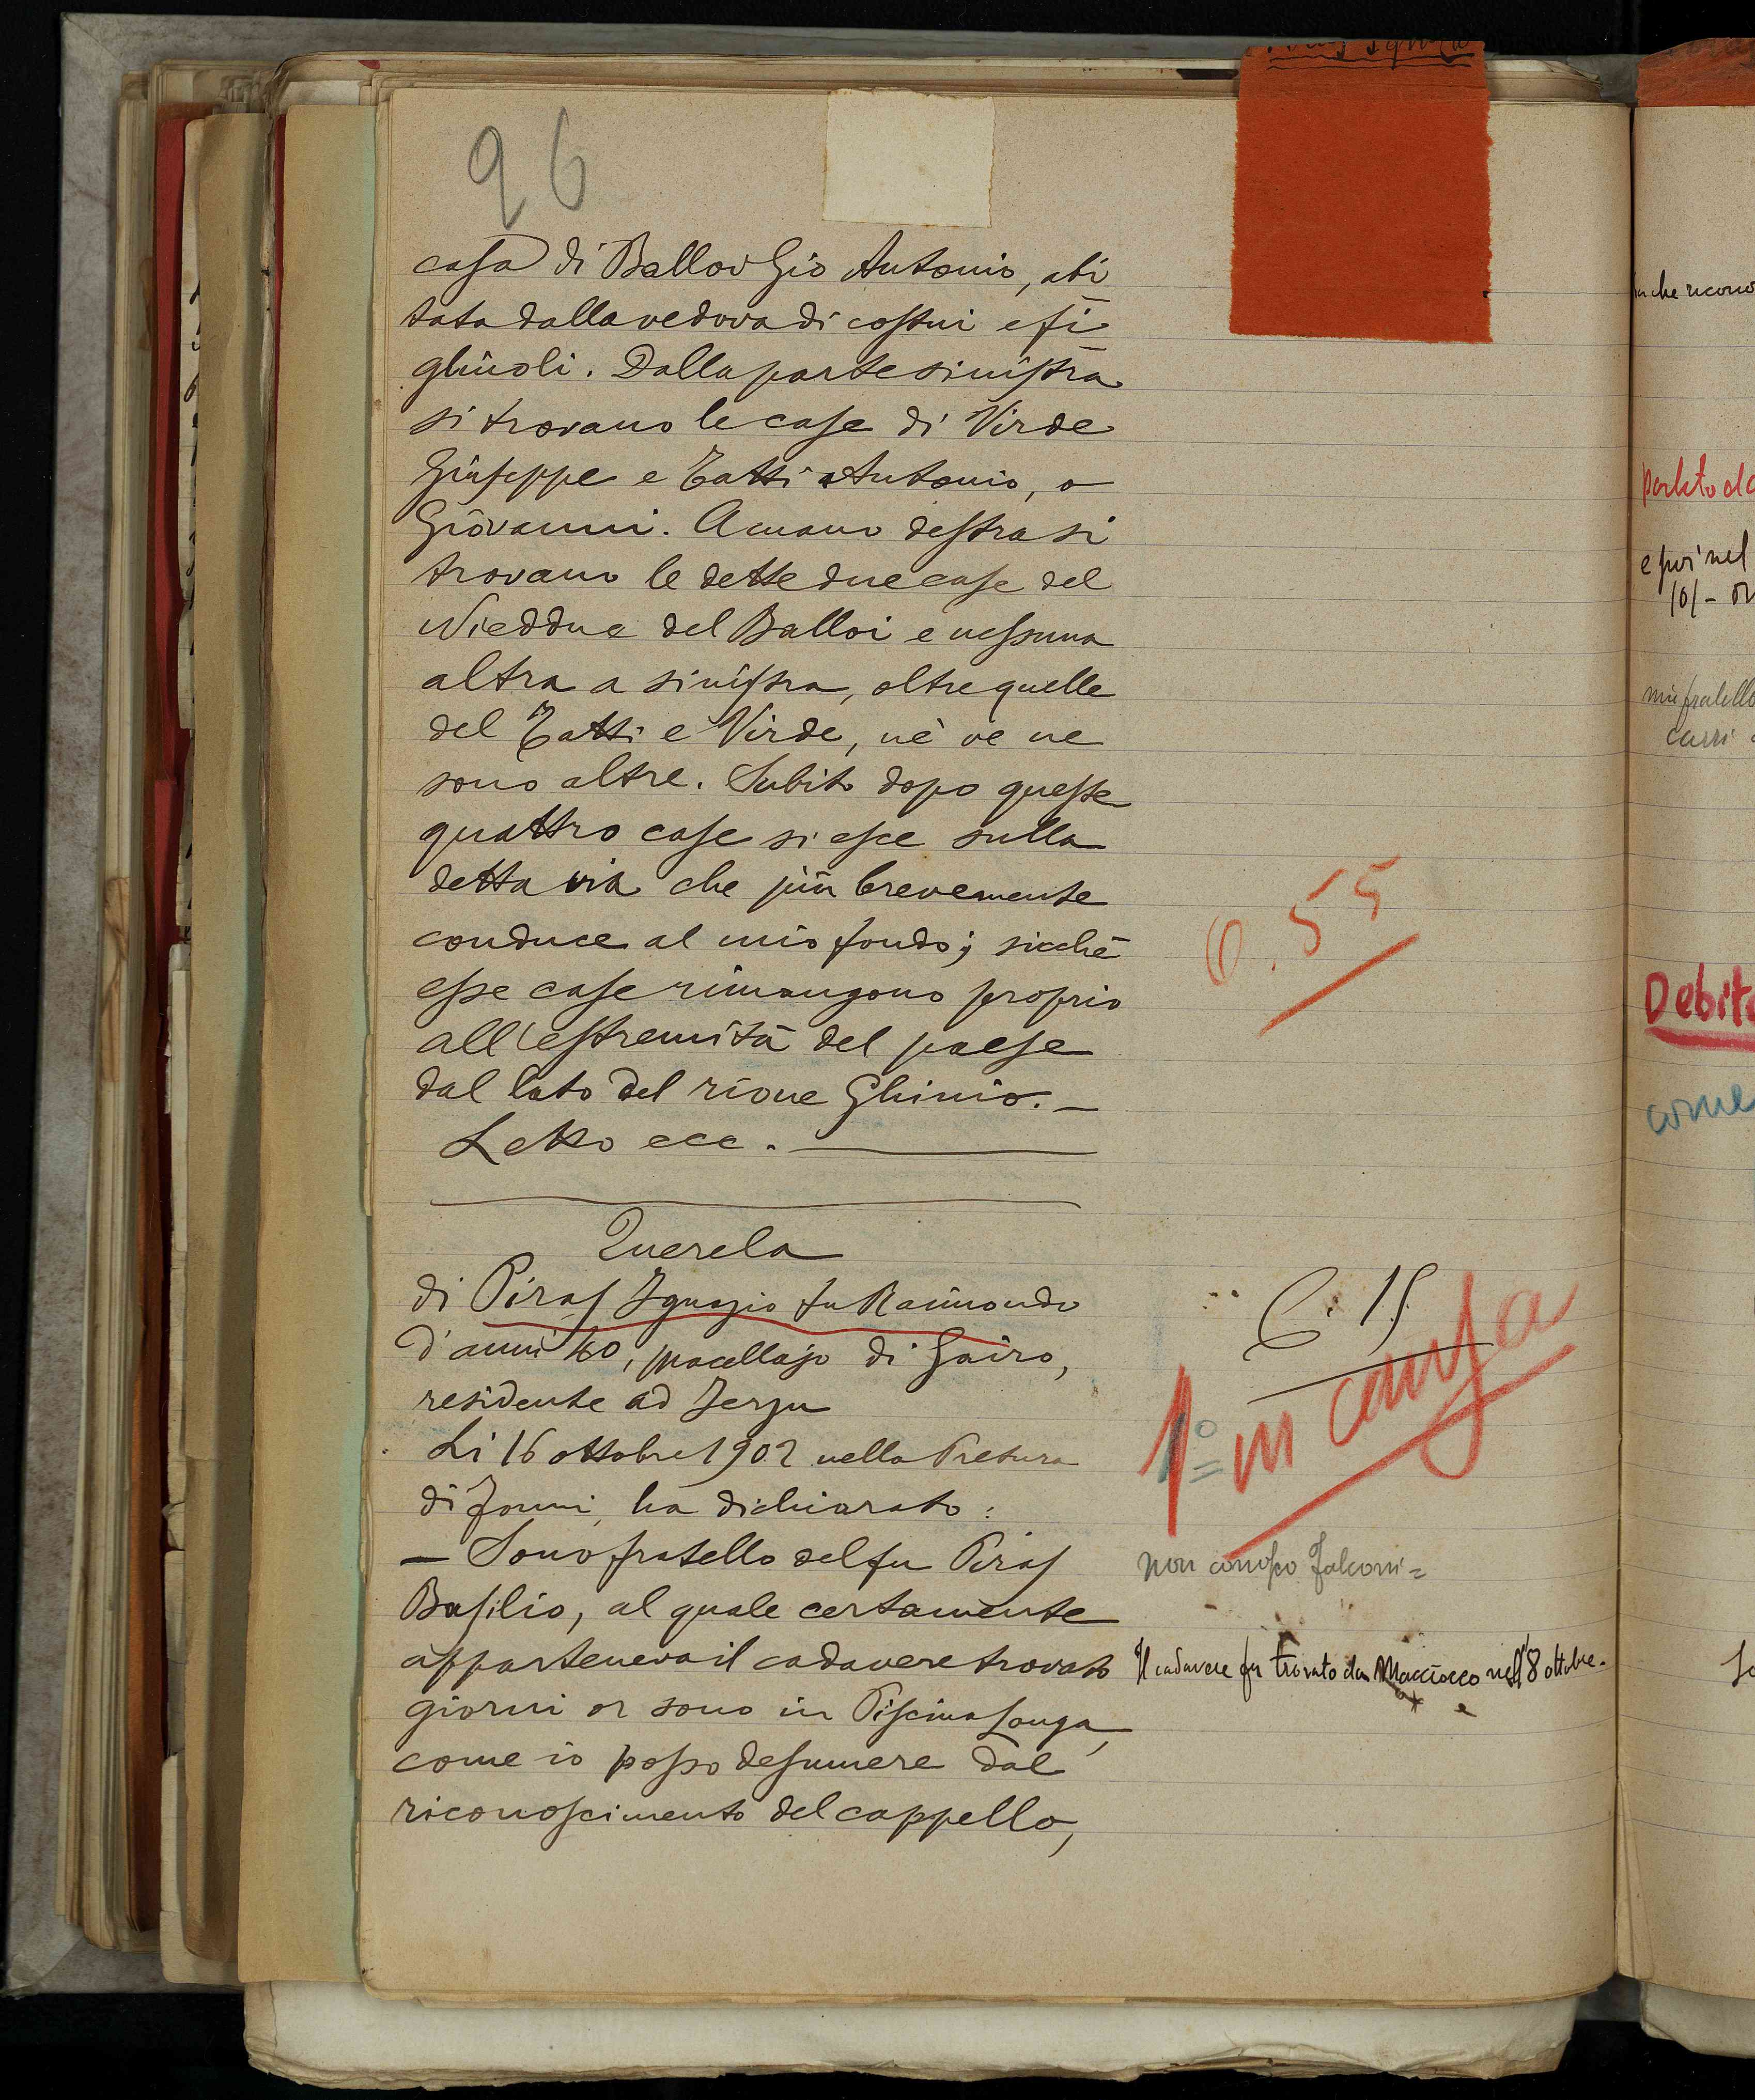 96
casa di Balloi Gio Antonio, abi
tata dalla vedova di costui e fi
gliuoli. Dalla parte sinistra
si trovano le case di Virde
Giuseppe e Tatti Antonio, o
Giovanni. A mano destra si
trovano le dette due case del
Nieddu e del Balloi e nessuna
altra a sinistra, oltre quelle
del Tatti e Virde, nè ve ne
sono altre. Subito dopo queste
quattro case si esce sulla
detta via che più brevemente
conduce al mio fondo; sicchè
esse case rimangono proprio
all'estremità del paese
dal lato del rione Ghinio.—
Letto ecc.
0.55
Querela
di Piras Ignazio fu Raimondo
d'anni 40, macellajo di Gairo,
residente ad Jerzu
Li 16 ottobre 1902 nella Pretura
di Fonni, ha dichiarato:
— Sono fratello del fu Piras
Basilio, al quale certamente
apparteneva il cadavere trovato
giorni or sono in Piscina Longa,
come io posso desumere dal
riconoscimento del cappello,
1° in causa
non conosco Falconi=
Il cadavere fu trovato da Macciocco nell'8 ottobre.
che ricono
e poi nel
mio fratello
carri
Debito
come